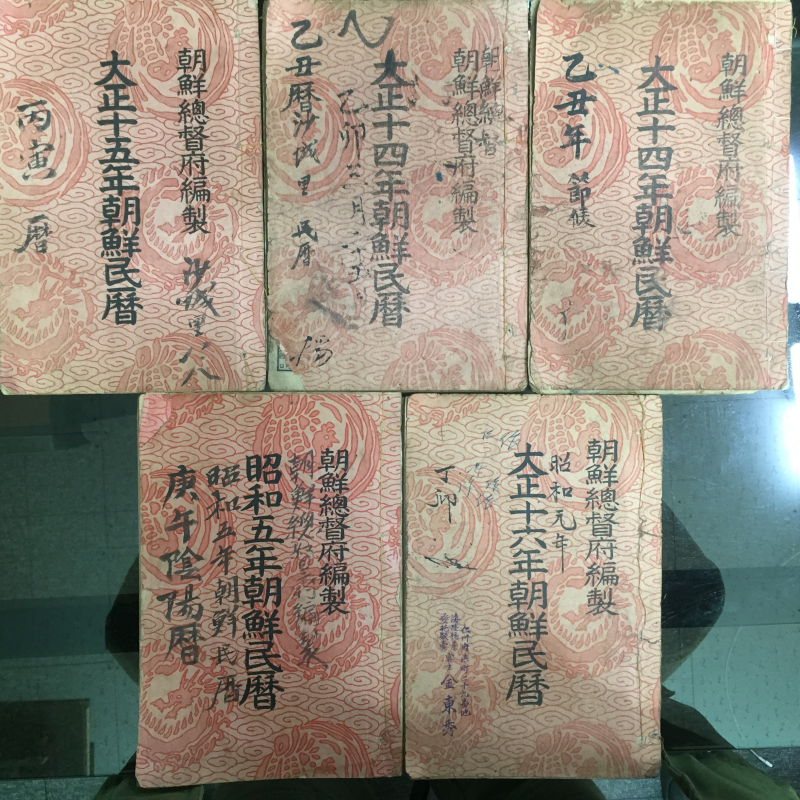 朝鮮總督府編製
大正十五年朝鮮民暦
丙寅 暦
沙城里 八八
朝鮮總督府編製
朝鮮總督
大正十四年朝鮮民暦
乙丑暦沙城里 民暦
朝鮮總督府編製
大正十四年朝鮮民暦
乙丑年 節候
朝鮮總督府編製
昭和五年朝鮮民暦
昭和五年朝鮮民暦
庚午陰陽暦
朝鮮總督府編製
昭和元年
大正十六年朝鮮民暦
丁卯
金東秀